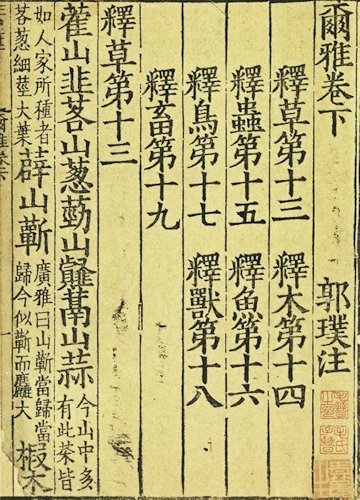 爾雅卷下　郭璞注
釋草第十三　釋木第十四
釋蟲第十五　釋魚第十六
釋鳥第十七　釋獸第十八
釋畜第十九
釋草第十三
藿山韭茖山葱葝山䪥蒚山蒜今山中多有此菜皆
如人家所種者茖葱細莖大葉薜山蘄廣雅曰山蘄當歸當歸今似蘄而麤大椴木